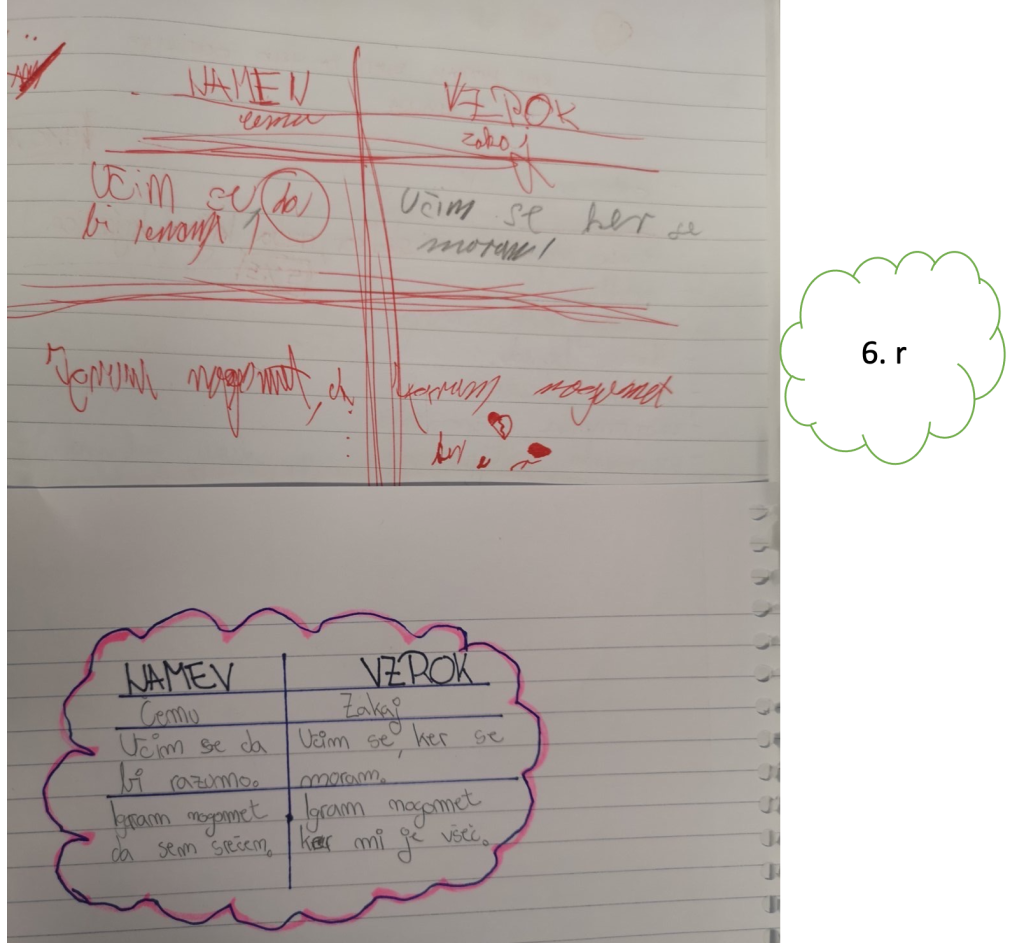 NAMEN
VZROK
čemu
zakaj
Učim se da
bi
Učim se ker se
moram!
nogomet, da
nogomet
ker
6. r
NAMEV
VZROK
Čemu
Zakaj
Učim se da
bi razumo.
Učim se, ker se
moram.
Igram nogomet
da sem srečem.
Igram nogomet
ker mi je všeč.